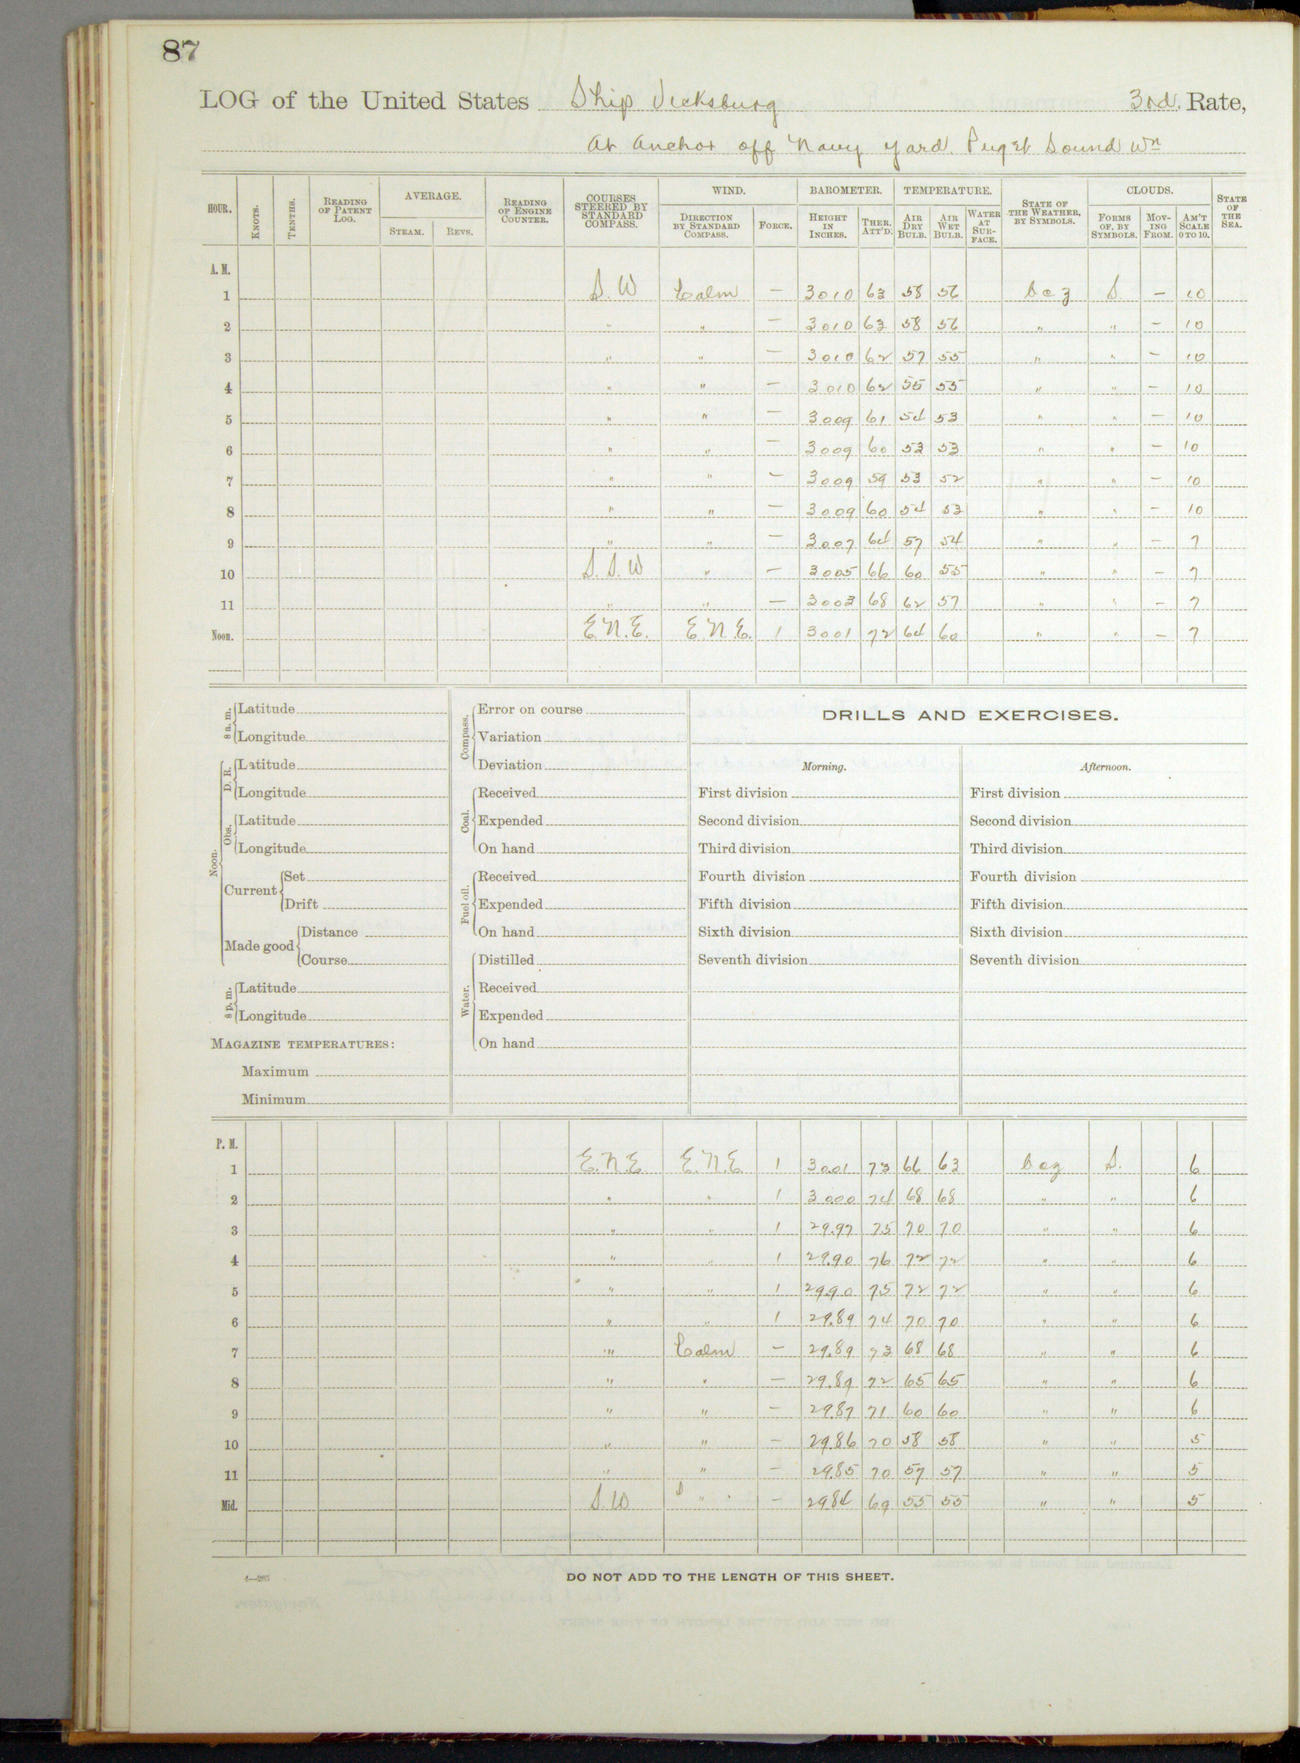 87
LOG of the United States Ship Vicksburg 3rd. Rate,
At Anchor off Navy Yard. Puget Sound Wn
HOUR. KNOTS. TENTHS. READING OF PATENT LOG. AVERAGE. STEAM. REVS. READING OF ENGINE COUNTER. COURSES STEERED BY STANDARD COMPASS. WIND. DIRECTION BY STANDARD COMPASS. FORCE. BAROMETER. HEIGHT IN INCHES. THER. ATT'D. TEMPERATURE. AIR DRY BULB. AIR WET BULB. WATER AT SURFACE. STATE OF THE WEATHER, BY SYMBOLS. CLOUDS. FORMS OF, BY SYMBOLS. MOVING FROM. AM'T SCALE 0 TO 10. STATE OF THE SEA.
A. M.
1 S. W Calm — 3010 63 58 56 bcz S. — 10
2 " " — 3010 63 58 56 " " — 10
3 " " — 3010 62 57 55 " " — 10
4 " " — 3010 62 55 55 " " — 10
5 " " — 3009 61 54 53 " " — 10
6 " " — 3009 60 53 53 " " — 10
7 " " — 3009 59 53 52 " " — 10
8 " " — 3009 60 54 53 " " — 10
9 " " — 3007 64 57 54 " " — 7
10 S. S. W " — 3005 66 60 55 " " — 7
11 " " — 3003 68 62 57 " " — 7
Noon. E.N.E. E.N.E. 1 3001 72 64 60 " " — 7
8 a. m. Latitude
Longitude
Noon. D. R. Latitude
Longitude
Obs. Latitude
Longitude
Current Set
Drift
Made good Distance
Course
8 p. m. Latitude
Longitude
MAGAZINE TEMPERATURES:
Maximum
Minimum
Compass. Error on course
Variation
Deviation
Coal. Received
Expended
On hand
Fuel oil. Received
Expended
On hand
Water. Distilled
Received
Expended
On hand
DRILLS AND EXERCISES.
Morning.
First division
Second division
Third division
Fourth division
Fifth division
Sixth division
Seventh division
Afternoon.
First division
Second division
Third division
Fourth division
Fifth division
Sixth division
Seventh division
P. M.
1 E.N.E E.N.E 1 3001 73 66 63 bcz S. 6
2 " " 1 3000 74 68 68 " " 6
3 " " 1 29.97 75 70 70 " " 6
4 " " 1 29.90 76 72 72 " " 6
5 " " 1 29.90 75 72 72 " " 6
6 " " 1 29.89 74 70 70 " " 6
7 " Calm — 29.89 73 68 68 " " 6
8 " " — 29.89 72 65 65 " " 6
9 " " — 29.87 71 60 60 " " 6
10 " " — 29.86 70 58 58 " " 5
11 " " — 29.85 70 57 57 " " 5
Mid. S. W " — 29.84 69 55 55 " " 5
DO NOT ADD TO THE LENGTH OF THIS SHEET.